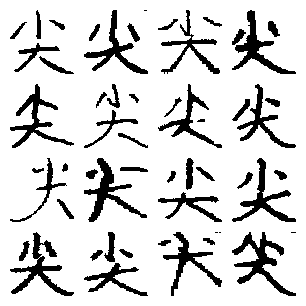 尖尖尖尖
尖尖尖尖
尖尖尖尖
尖尖尖尖